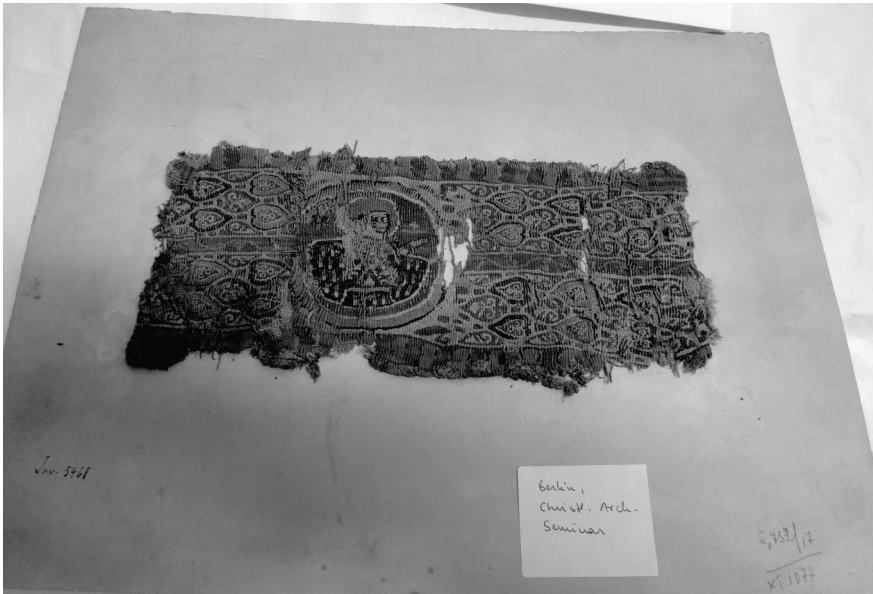 Inv. 5468
Berlin,
Christl. Arch.
Seminar
KT 1077